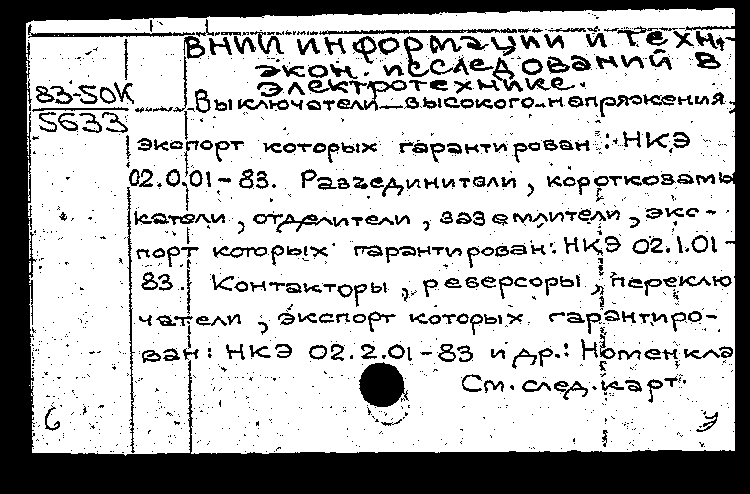 ВНИИ информации и техн.-
экон. исследований в
электротехнике.
83-50К
5633
Выключатели высокого напряжения,
экспорт которых гарантирован: НКЭ
02.0.01-83. Разъединители, короткозамы
катели, отделители, заземлители, экс-
порт которых гарантирован: НКЭ 02.1.01-
83. Контакторы, реверсоры, переклю
чатели, экспорт которых гарантиро-
ван: НКЭ 02.2.01-83 и др.: Номенкла
См. след. карт.
6